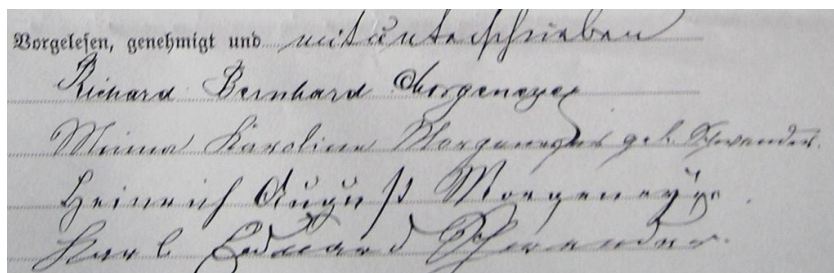 Vorgelesen, genehmigt und mitunterschrieben
Richard Bernhard Morgeneyer
Minna Karoline Morgeneyer geb. Schwender.
Heinrich August Morgeneyer.
Karl Eduard Schwender.